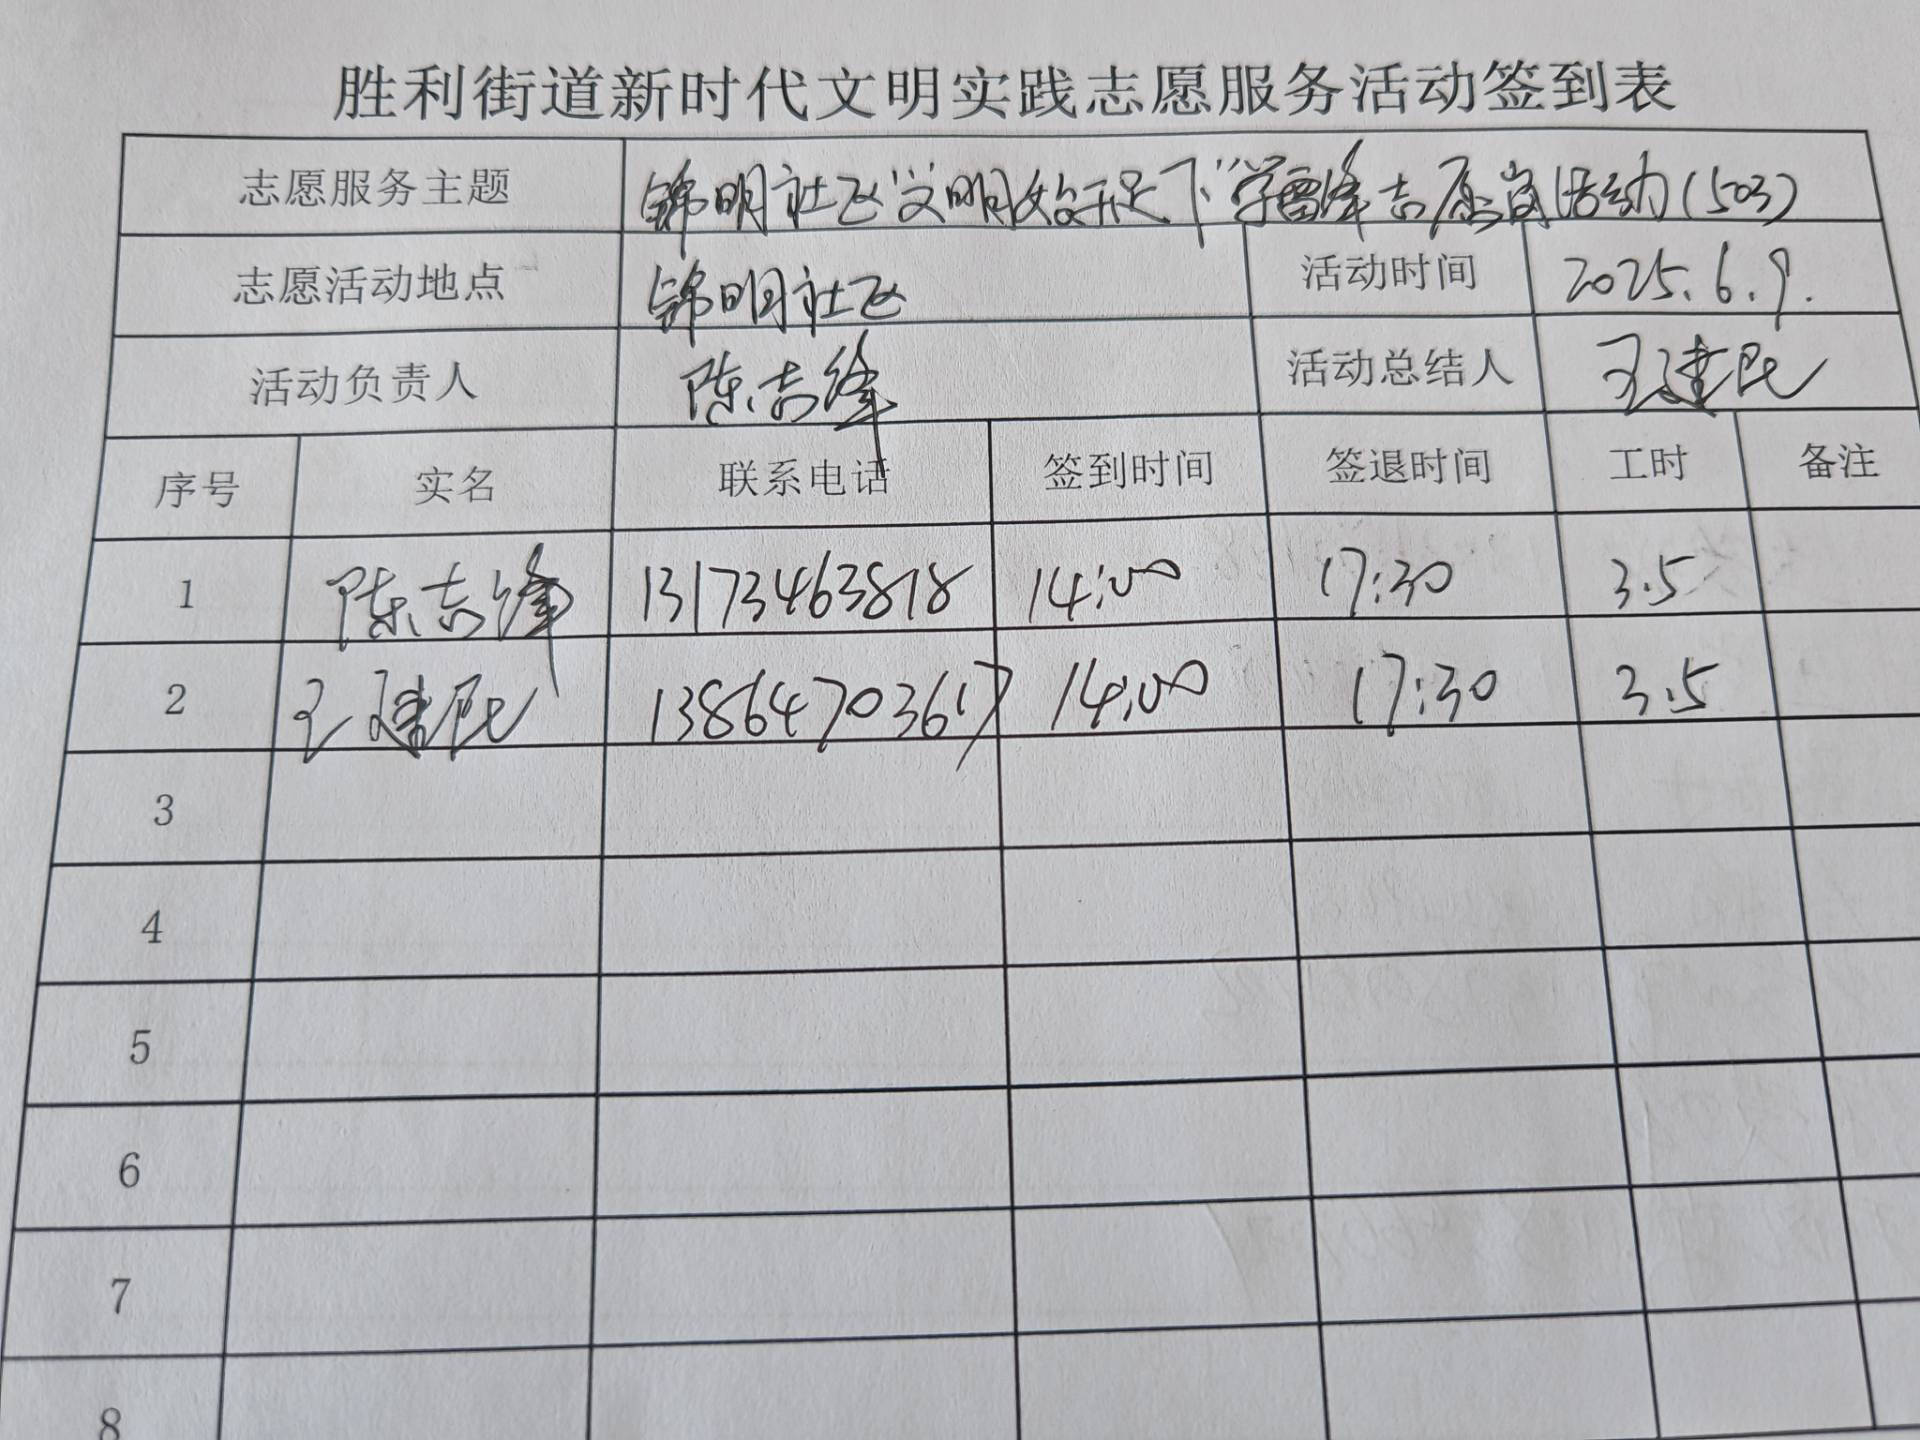 胜利街道新时代文明实践志愿服务活动签到表
志愿服务主题 锦明社区"文明始于足下"学雷锋志愿岗活动(503)
志愿活动地点 锦明社区 活动时间 2025.6.9.
活动负责人 陈志峰 活动总结人 王建民
序号 实名 联系电话 签到时间 签退时间 工时 备注
1 陈志峰 13173463818 14:00 17:30 3.5
2 王建民 13864703617 14:00 17:30 3.5
3
4
5
6
7
8